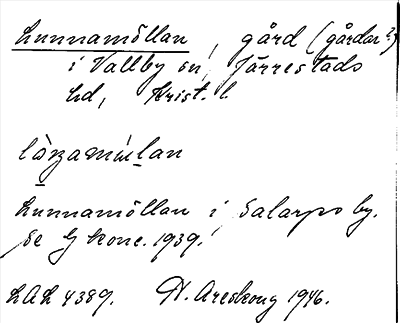 Lunnamöllan, gård (gårdar?)
i Vallby sn, Järrestads
hd, Krist. l.
Lunnamöllan i Salarps by.
Se Ej kone. 1939.
LAL 4389. N. Areskoug 1946.